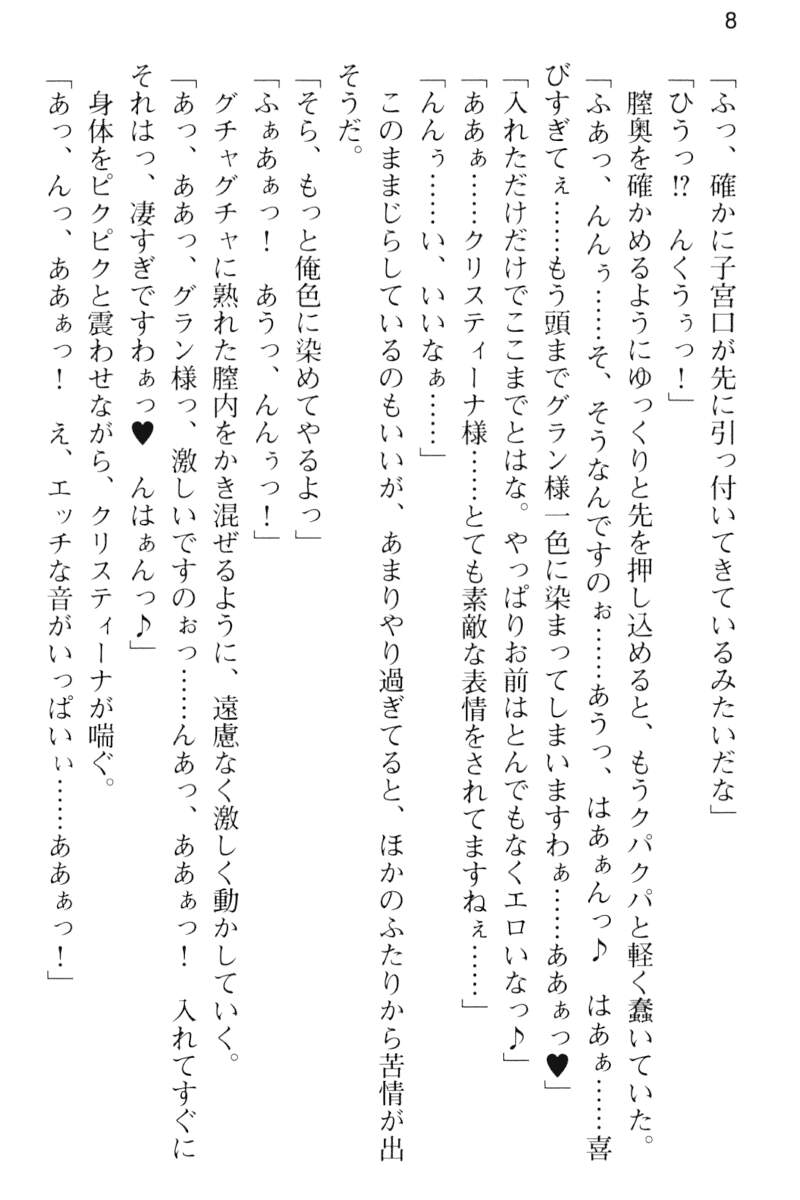 8
「ふっ、確かに子宮口が先に引っ付いてきているみたいだな」
「ひうっ!?　んくうぅっ！」
　膣奥を確かめるようにゆっくりと先を押し込めると、もうクパクパと軽く蠢いていた。
「ふあっ、んんぅ……そ、そうなんですのぉ……あうっ、はあぁんっ♪　はあぁ……喜
びすぎてぇ……もう頭までグラン様一色に染まってしまいますわぁ……ああぁっ♥」
「入れただけだけでここまでとはな。やっぱりお前はとんでもなくエロいなっ♪」
「ああぁ……クリスティーナ様……とても素敵な表情をされてますねぇ……」
「んんぅ……い、いいなぁ……」
　このままじらしているのもいいが、あまりやり過ぎてると、ほかのふたりから苦情が出
そうだ。
「そら、もっと俺色に染めてやるよっ」
「ふぁあぁっ！　あうっ、んんぅっ！」
　グチャグチャに熟れた膣内をかき混ぜるように、遠慮なく激しく動かしていく。
「あっ、ああっ、グラン様っ、激しいですのぉっ……んあっ、ああぁっ！　入れてすぐに
それはっ、凄すぎですわぁっ♥　んはぁんっ♪」
　身体をピクピクと震わせながら、クリスティーナが喘ぐ。
「あっ、んっ、ああぁっ！　え、エッチな音がいっぱいぃ……ああぁっ！」